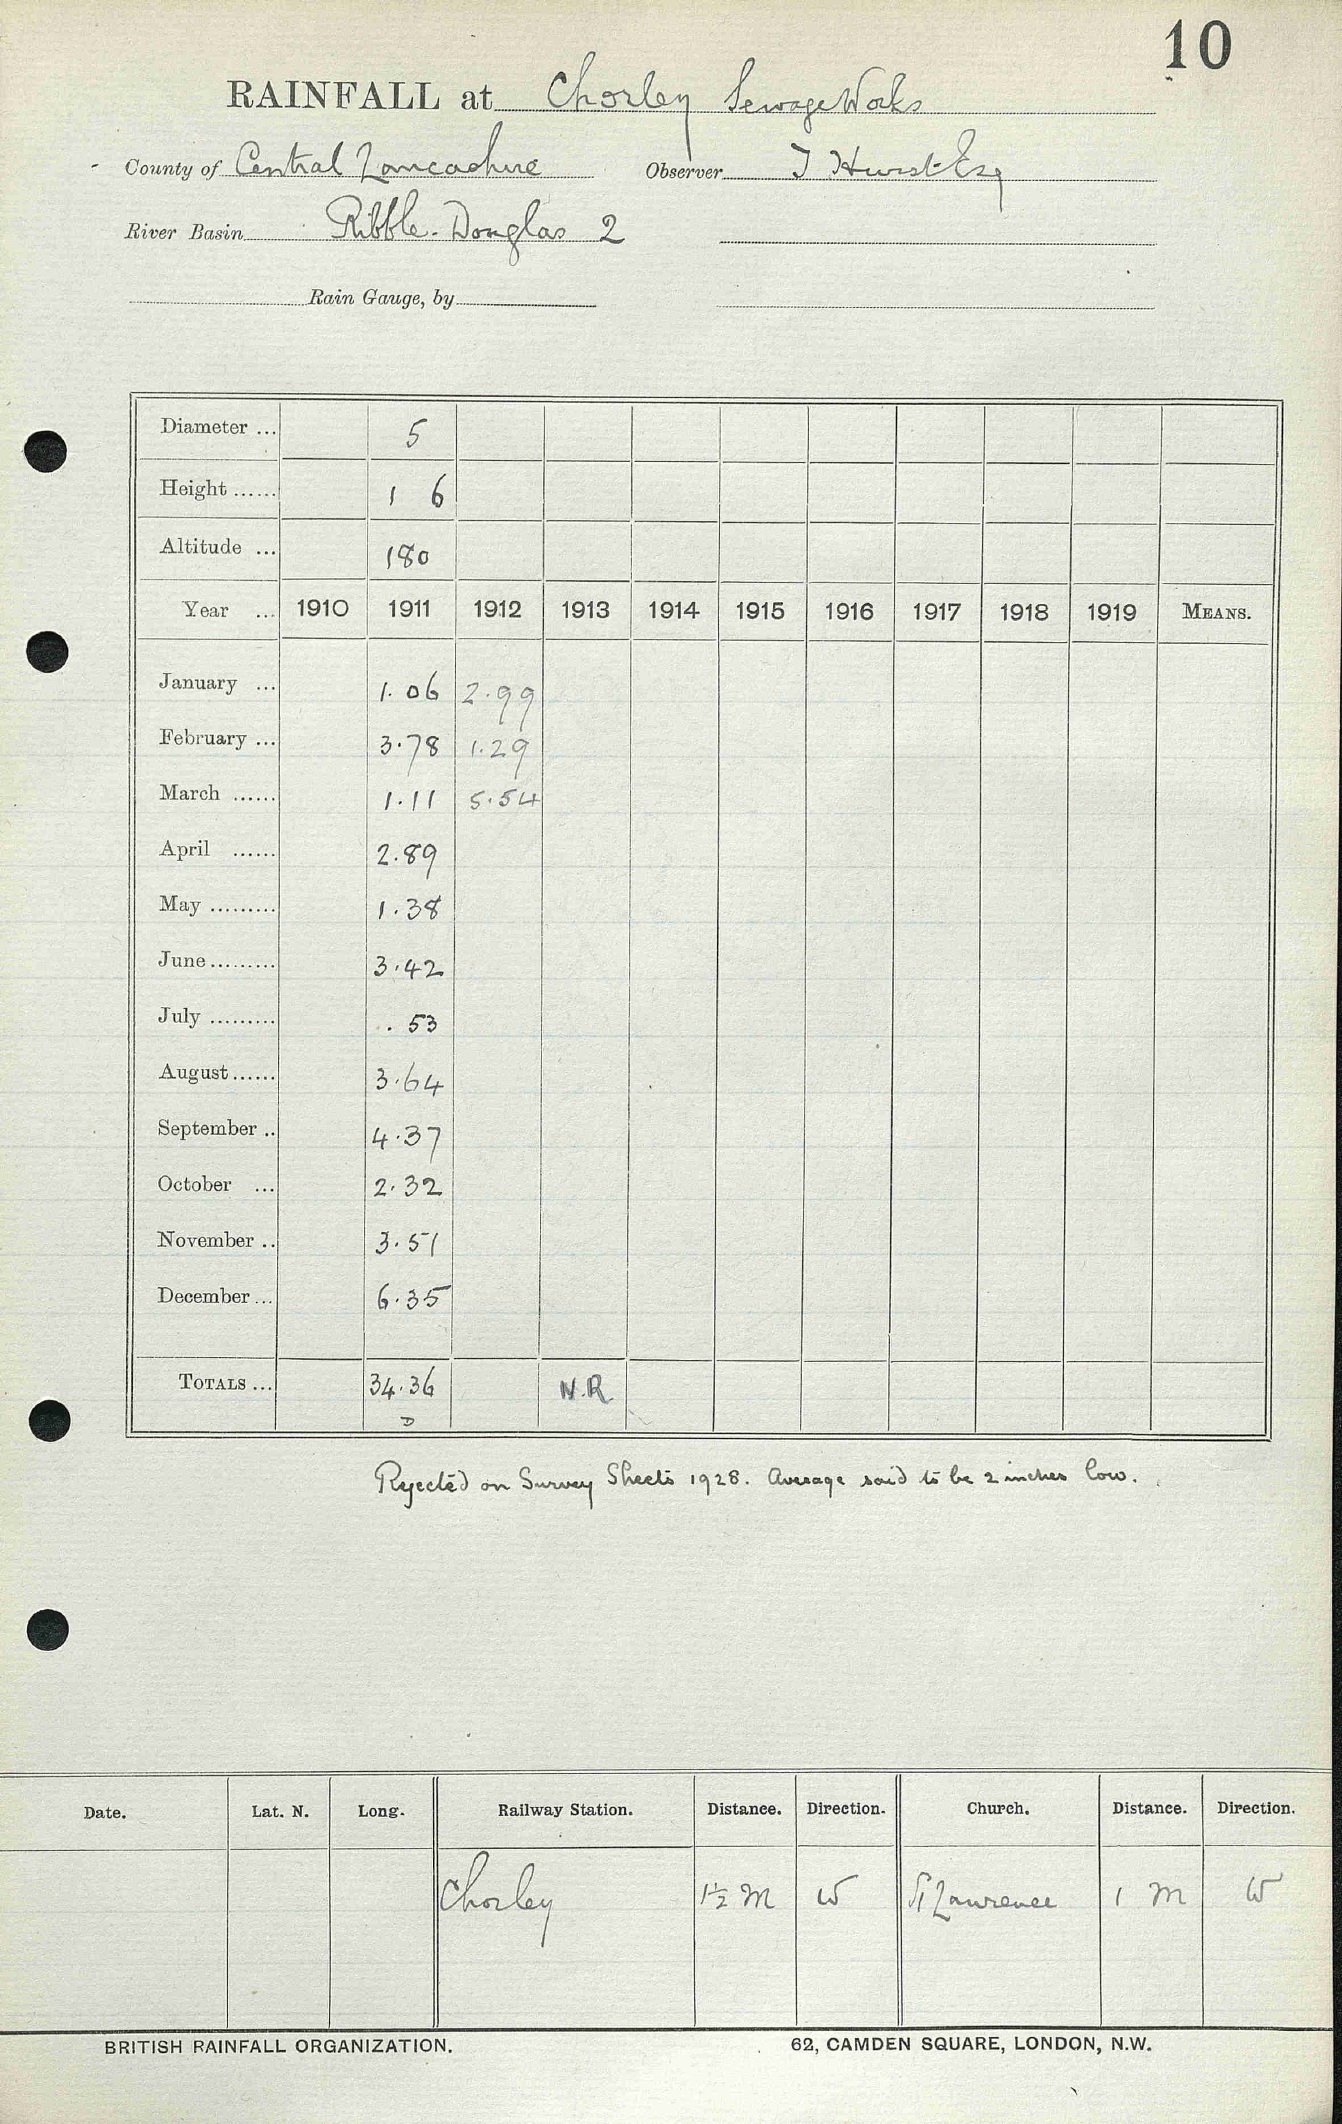 10
RAINFALL at Chorley Sewage Works
County of Central Lancashire Observer J Hurst Esq
River Basin Ribble. Douglas 2
Rain Gauge, by
Diameter ... 5
Height ...... 1 6
Altitude ... 180
Year ... 1910 1911 1912 1913 1914 1915 1916 1917 1918 1919 MEANS.
January ... 1.06 2.99
February ... 3.78 1.29
March ...... 1.11 5.54
April ...... 2.89
May ......... 1.38
June ......... 3.42
July ......... .53
August ...... 3.64
September .. 4.37
October ... 2.32
November .. 3.51
December ... 6.35
TOTALS ... 34.36 N.R.
D
Rejected on Survey Sheets 1928. Average said to be 2 inches low.
Date. Lat. N. Long. Railway Station. Distance. Direction. Church. Distance. Direction.
Chorley 1½ M W St Lawrence 1 M W
BRITISH RAINFALL ORGANIZATION. 62, CAMDEN SQUARE, LONDON, N.W.